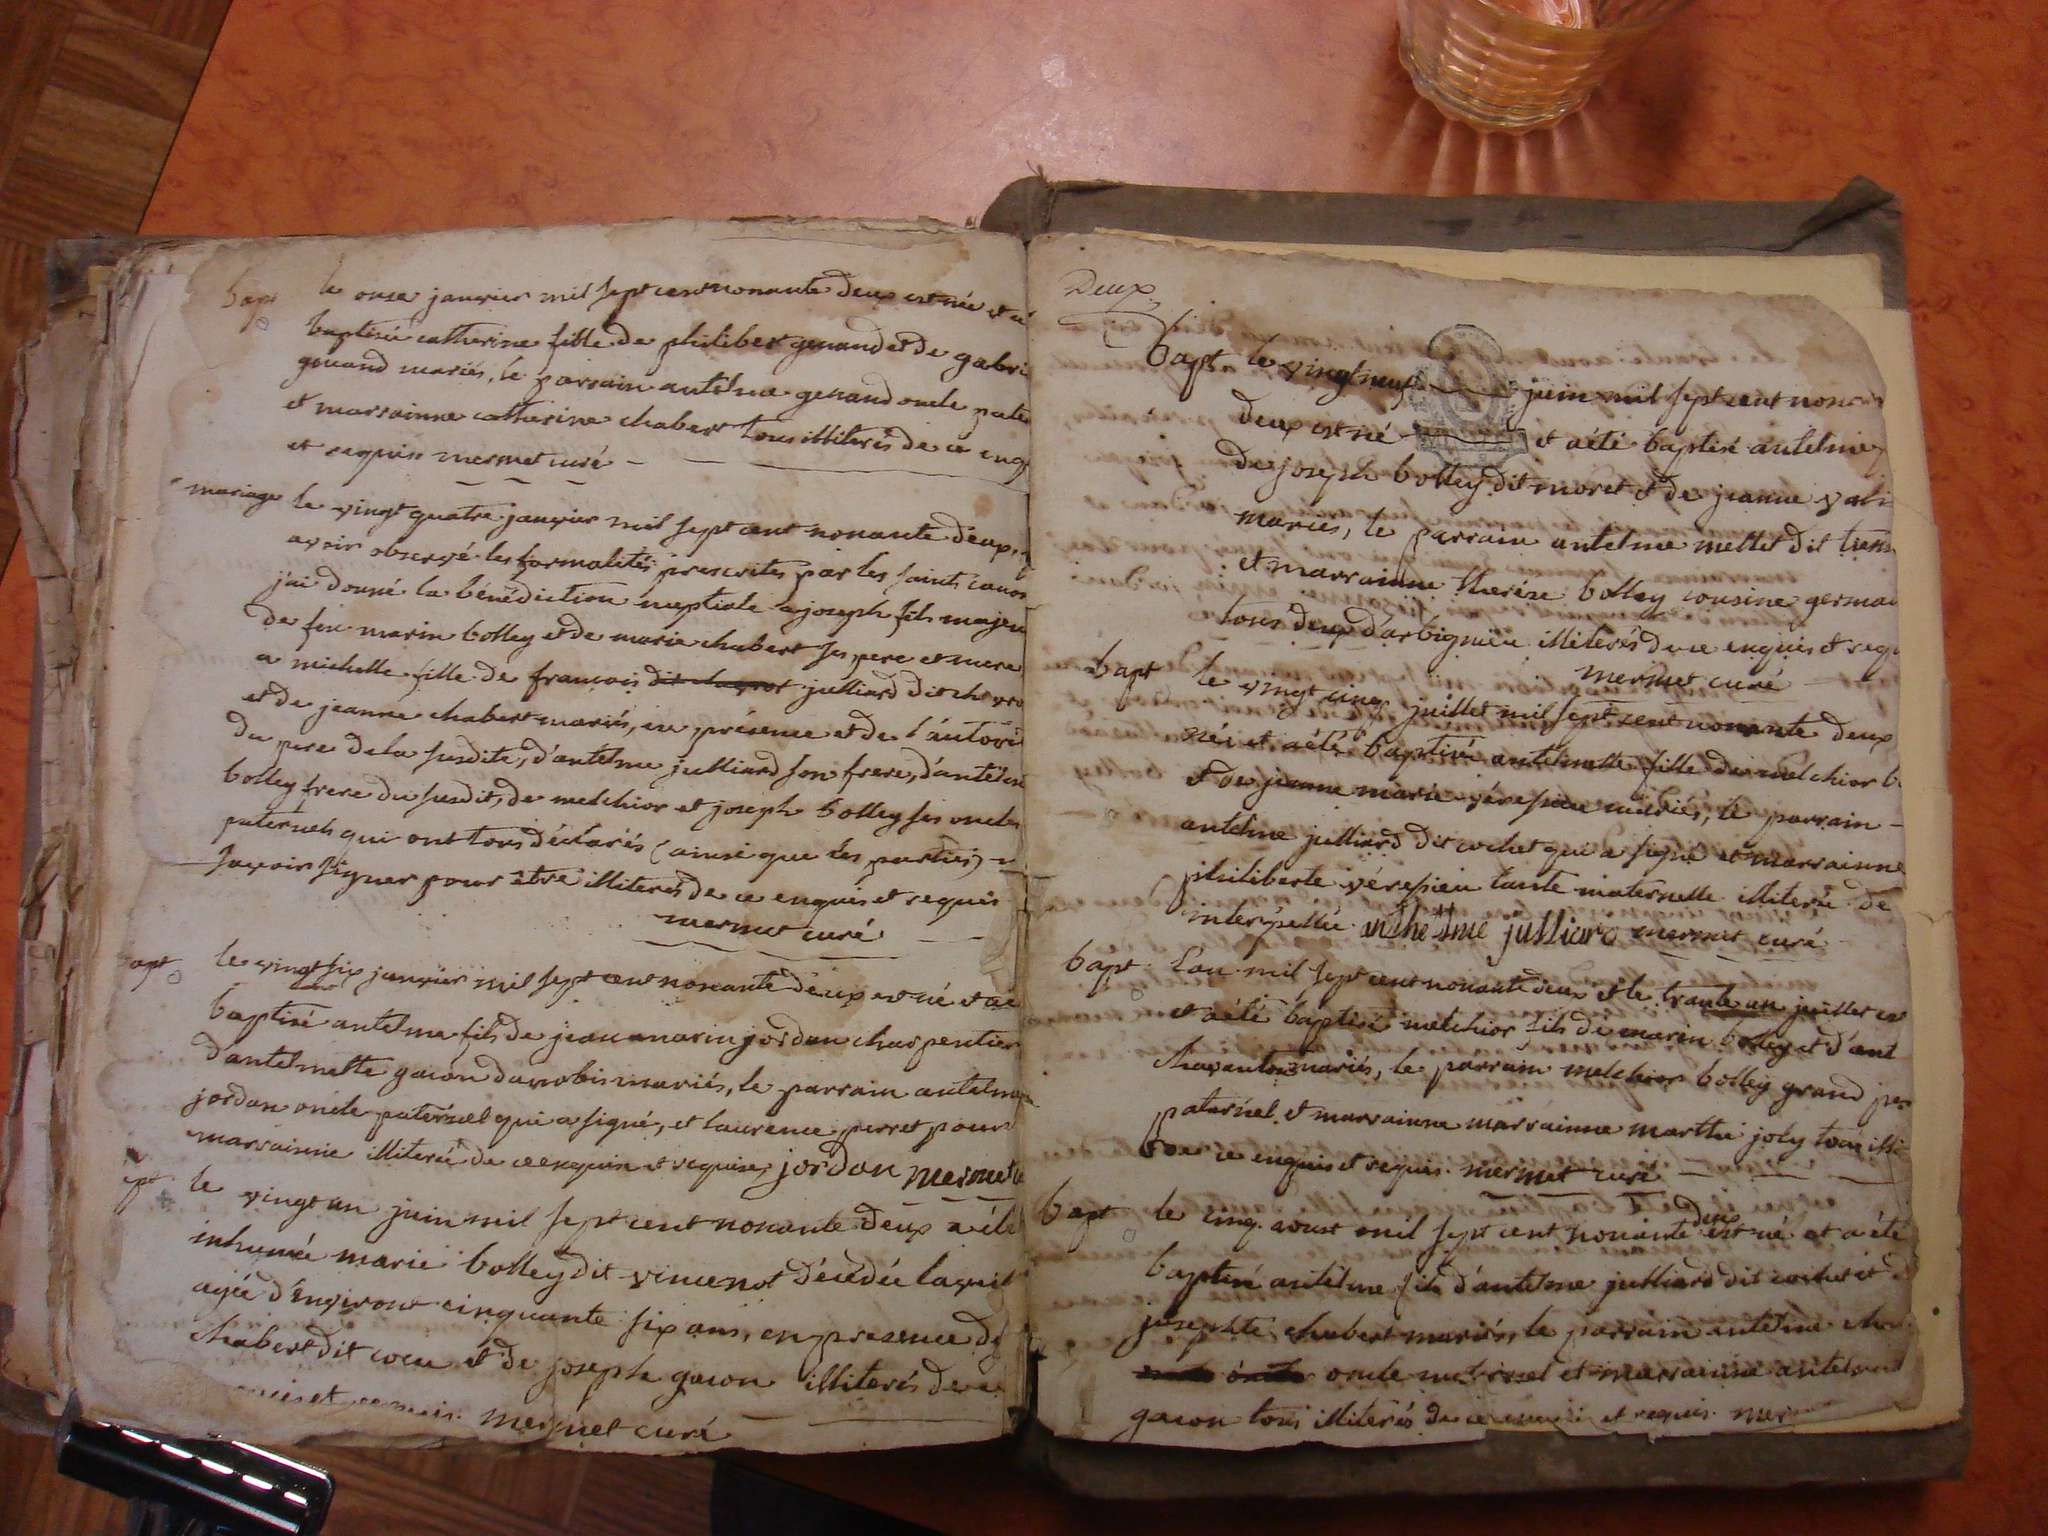 bapt le onze janvier mil sept cent nonante deux est née et a
baptisée catherine fille de philibert genand et de gabri
genand mariés, le parrain antelme genand oncle pate
et marrainne catherine chabert tous illiterés de ce enq
et requis mermet curé
mariage le vingt quatre janvier mil sept cent nonante deux,
avoir observé les formalités prescrites par les saints canon
j'ai donné la bénédiction nuptiale a joseph fils majeu
de feu marin bolley et de marie chabert ses pere et mere
a michelle fille de francois julliard dit chevro
et de jeanne chabert mariés, en présence et de l'autori
du pere de la susdite, d'antelme julliard son frere, d'antelme
bolley frere du susdit, de melchior et joseph bolley ses oncles
paternels qui ont tous déclarés (ainsi que les parties)
savoir signer pour être illiterés de ce enquis et requis
mermet curé
bapt le vingt six janvier mil sept cent nonante deux est né et a é
baptisé antelme fils de jean marin jordan charpentier
d'antelmette gacon davrobis mariés, le parrain antelme
jordan oncle paternel qui a signé, et laurence perret pour
marrainne illiterée de ce enquise et requise, jordan mermet c
le vingt un juin mil sept cent nonante deux a été
inhumée marie bolley dit vincenot décédée laquel
agée d'environt cinquante six ans, en presence d
chabert dit cocu et de joseph gacon illiterés de ce
mermet curé
Deux
bapt le vingt neuf juin mil sept cent nonan
deux est né et a été baptisé antelme
de joseph bolley dit moret et de jeanne
mariés, le parrain antelme mettet dit
et marrainne therése bolley cousine germai
tous deux d'arbignieu illiterés de ce enquis et requ
mermet curé
bapt le vingt cinq juillet mil sept cent nonante deux
née et a été baptisée antelmette fille de melchior b
et de jeanne marie vérepieu mariés, le parrain
antelme julliard dit cochet qui a signé et marrainne
philiberte vérepieu tante maternelle illiterée de
interpellée anthelme julliard mermet curé
bapt l'an mil sept cent nonante deux et le trante un juillet est
et a été baptisé melchior fils de marin bolley et d'ant
chapanton mariés, le parrain melchior bolley grand per
paternel et marrainne marrainne marthe joly tous illi
de ce enquis et requis mermet curé
bapt le cinq aoust mil sept cent nonante deux est né et a été
baptisé antelme fils d'antelme julliard dit cochet et d
josephte chabert mariés, le parrain antelme cha
oncle maternel et marrainne antelme
gacon tous illiterés de ce enquis et requis mer